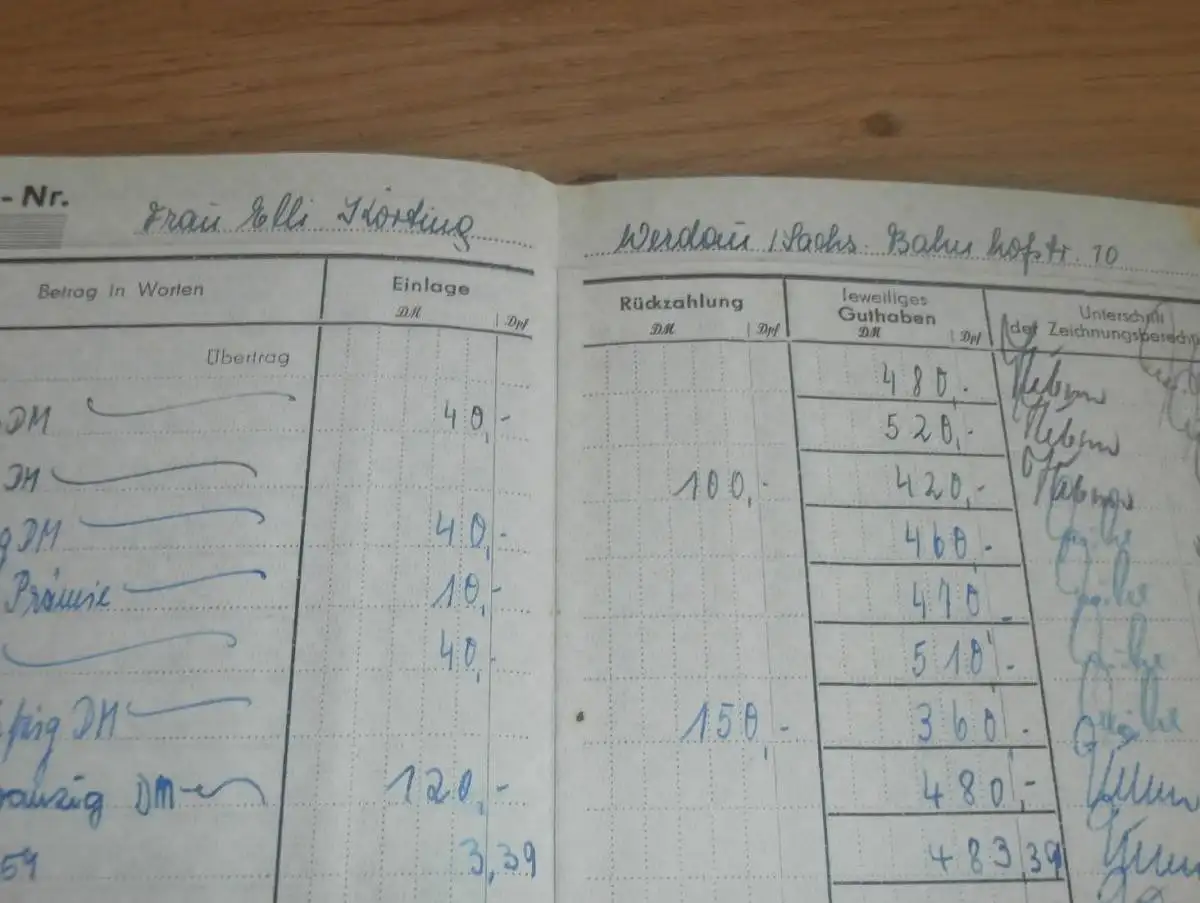 - Nr. Frau Elli Körting Werdau / Sachs. Bahnhofstr. 10
Betrag in Worten Einlage Rückzahlung Jeweiliges Guthaben Unterschrift
DM Dpf DM Dpf DM Dpf der Zeichnungsberecht
Übertrag 480,-
DM 40,- 520,-
DM 100,- 420,-
g DM 40,- 460,-
Prämie 10,- 470,-
40,- 510,-
pzig DM 150,- 360,-
wanzig DM 120,- 480,-
59 3,39 483,39